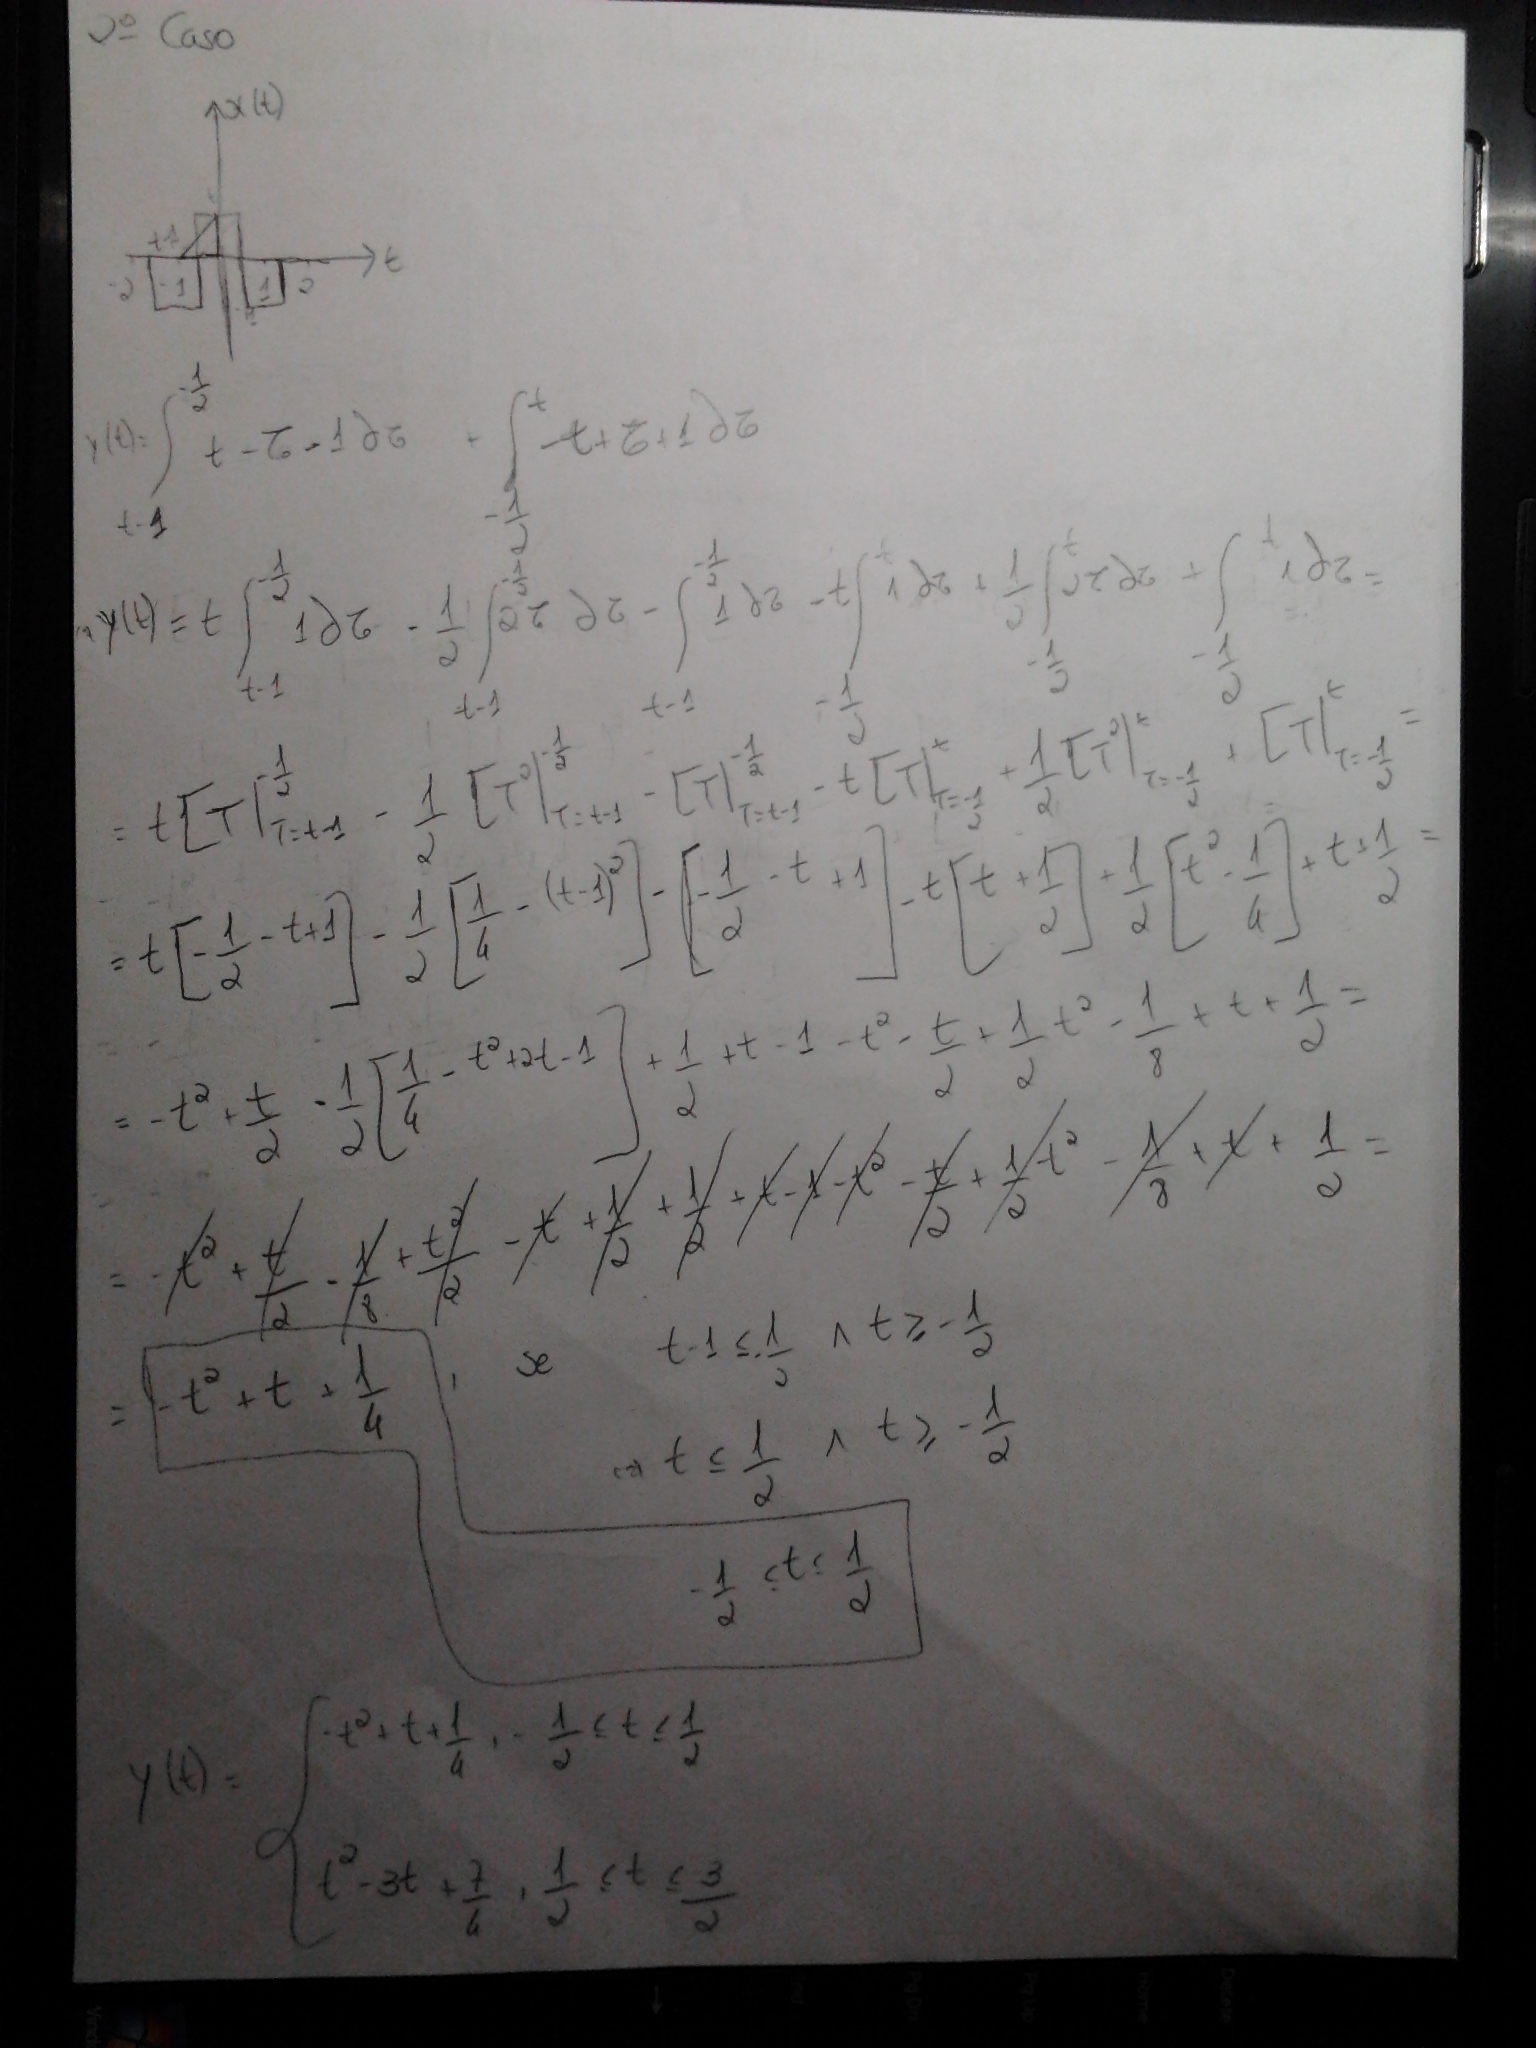 2º Caso
x(t)
t+1
-2 -1 1 2 t
-1
y(t) = ∫_{t-1}^{-1/2} t - τ - 1 dτ + ∫_{-1/2}^{t} -t + τ + 1 dτ
y(t) = t ∫_{t-1}^{-1/2} 1 dτ - 1/2 ∫_{t-1}^{-1/2} 2τ dτ - ∫_{t-1}^{-1/2} 1 dτ - t ∫_{-1/2}^{t} 1 dτ + 1/2 ∫_{-1/2}^{t} 2τ dτ + ∫_{-1/2}^{t} 1 dτ =
= t [τ|_{τ=t-1}^{-1/2} - 1/2 [τ²|_{τ=t-1}^{-1/2} - [τ|_{τ=t-1}^{-1/2} - t [τ|_{τ=-1/2}^{t} + 1/2 [τ²|_{τ=-1/2}^{t} + [τ|_{τ=-1/2}^{t} =
= t [-1/2 - t + 1] - 1/2 [1/4 - (t-1)²] - [-1/2 - t + 1] - t [t + 1/2] + 1/2 [t² - 1/4] + t + 1/2 =
= -t² + t/2 - 1/2 [1/4 - t² + 2t - 1] + 1/2 + t - 1 - t² - t/2 + 1/2 t² - 1/8 + t + 1/2 =
= -t² + t/2 - 1/8 + t²/2 - t + 1/2 + 1/2 + t - 1 - t² - t/2 + 1/2 t² - 1/8 + t + 1/2 =
= -t² + t + 1/4 , se t-1 ≤ -1/2 ∧ t ≥ -1/2
⇔ t ≤ 1/2 ∧ t ≥ -1/2
-1/2 ≤ t ≤ 1/2
y(t) = { -t² + t + 1/4 , -1/2 ≤ t ≤ 1/2
t² - 3t + 7/4 , 1/2 ≤ t ≤ 3/2